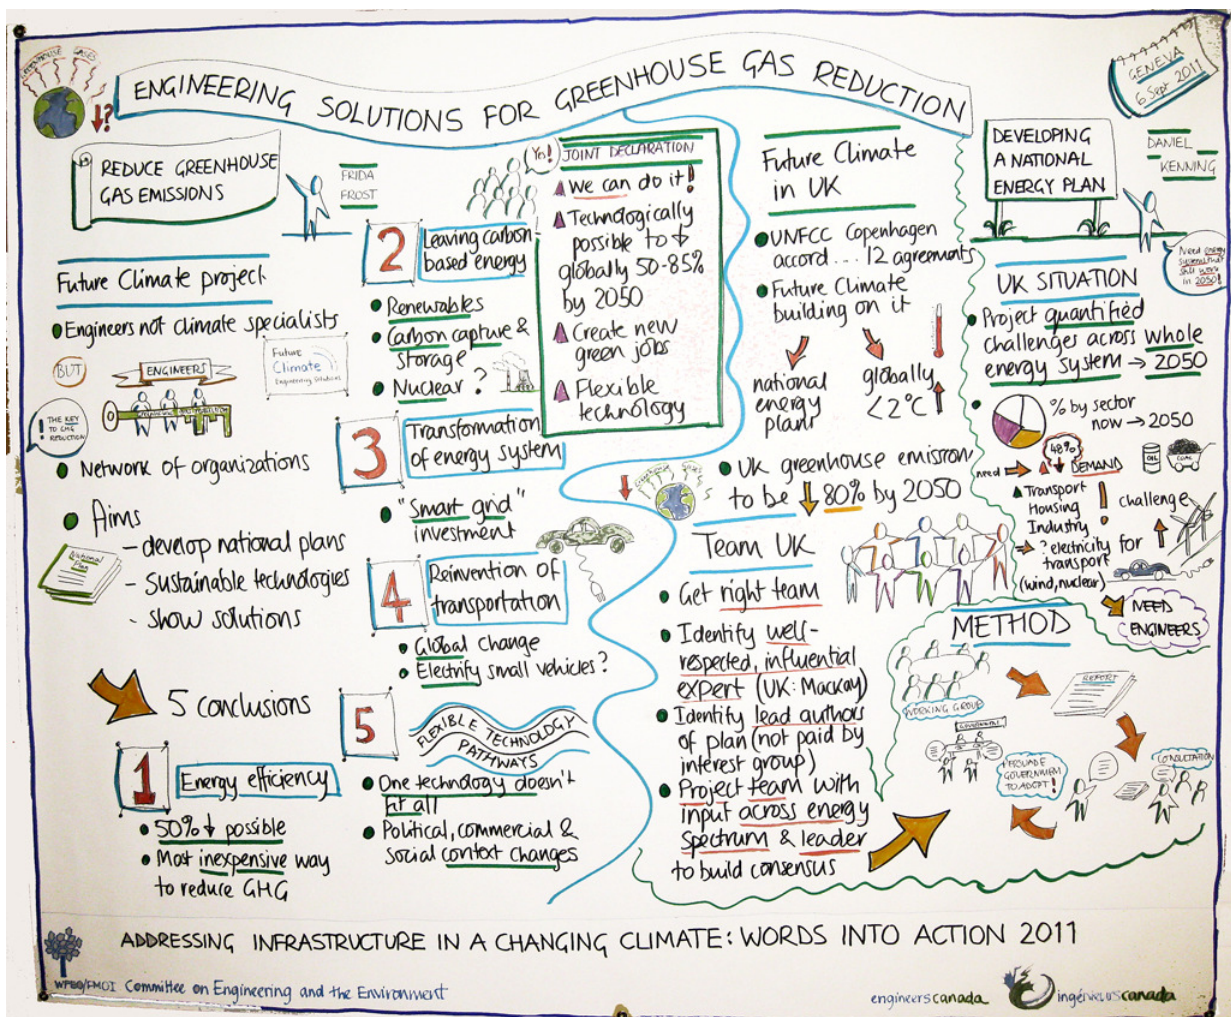 GREENHOUSE GASES
?
ENGINEERING SOLUTIONS FOR GREENHOUSE GAS REDUCTION
GENEVA
6 Sept 2011
REDUCE GREENHOUSE
GAS EMISSIONS
FRIDA
FROST
Future Climate project
Engineers not climate specialists
BUT
ENGINEERS
THE KEY
TO GHG
REDUCTION
!
Future
Climate
Engineering Solutions
Network of organizations
Aims
- develop national plans
- Sustainable technologies
- show solutions
National
Plan
5 conclusions
1
Energy efficiency
50% ↓ possible
Most inexpensive way
to reduce GHG
2
Leaving carbon
based energy
Renewables
Carbon capture &
storage
Nuclear?
3
Transformation
of energy system
"Smart grid"
investment
4
Reinvention of
transportation
Global change
Electrify small vehicles?
5
FLEXIBLE TECHNOLOGY
PATHWAYS
One technology doesn't
fit all
Political, commercial &
Social context changes
Yes!
JOINT DECLARATION
We can do it!
Technologically
possible to ↓
globally 50-85%
by 2050
Create new
green jobs
Flexible
technology
Future Climate
in UK
UNFCC Copenhagen
accord ... 12 agreements
Future Climate
building on it
national
energy
plans
globally
<2°C
UK greenhouse emission
to be ↓ 80% by 2050
Team UK
Get right team
Identify well-
respected, influential
expert (UK: MacKay)
Identify lead authors
of plan (not paid by
interest group)
Project team with
input across energy
Spectrum & leader
to build consensus
DEVELOPING
A NATIONAL
ENERGY PLAN
DANIEL
KENNING
Need energy
system that
still work
in 2050!
UK SITUATION
Project quantified
challenges across whole
energy system → 2050
% by sector
now → 2050
need
48%
DEMAND
OIL
COAL
Transport
Housing
Industry
!
challenge
? electricity for
transport
(wind, nuclear)
NEED
ENGINEERS
METHOD
WORKING GROUP
REPORT
CONSULTATION
PERSUADE
GOVERNMENT
TO ADOPT!
GOVERNMENT
ADDRESSING INFRASTRUCTURE IN A CHANGING CLIMATE: WORDS INTO ACTION 2011
WFEO/FMOI Committee on Engineering and the Environment
engineerscanada
ingénieurscanada